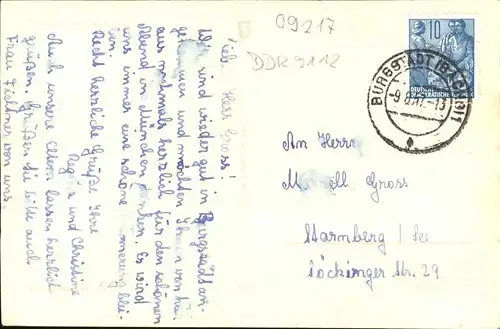 09217
DDR 9112
10
DEUTSCHE
DEMOKRATISCHE
BURGSTÄDT (SACHS) 1
Lieb. Herr Gross!
Wir sind wieder gut in Burgstädt an-
gekommen und möchten Ihnen von hier
aus nochmals herzlich für den schönen
Abend in München danken. Es wird
uns immer eine schöne Erinnerung blei-
ben.
Recht herzliche Grüße Ihre
Regina und Christine
Auch unsere Eltern lassen herzlich
grüßen. Grüßen Sie bitte auch
Frau Fichtner von uns.
An Herrn
M ell Gross
Starnberg / See
Söckinger Str. 29